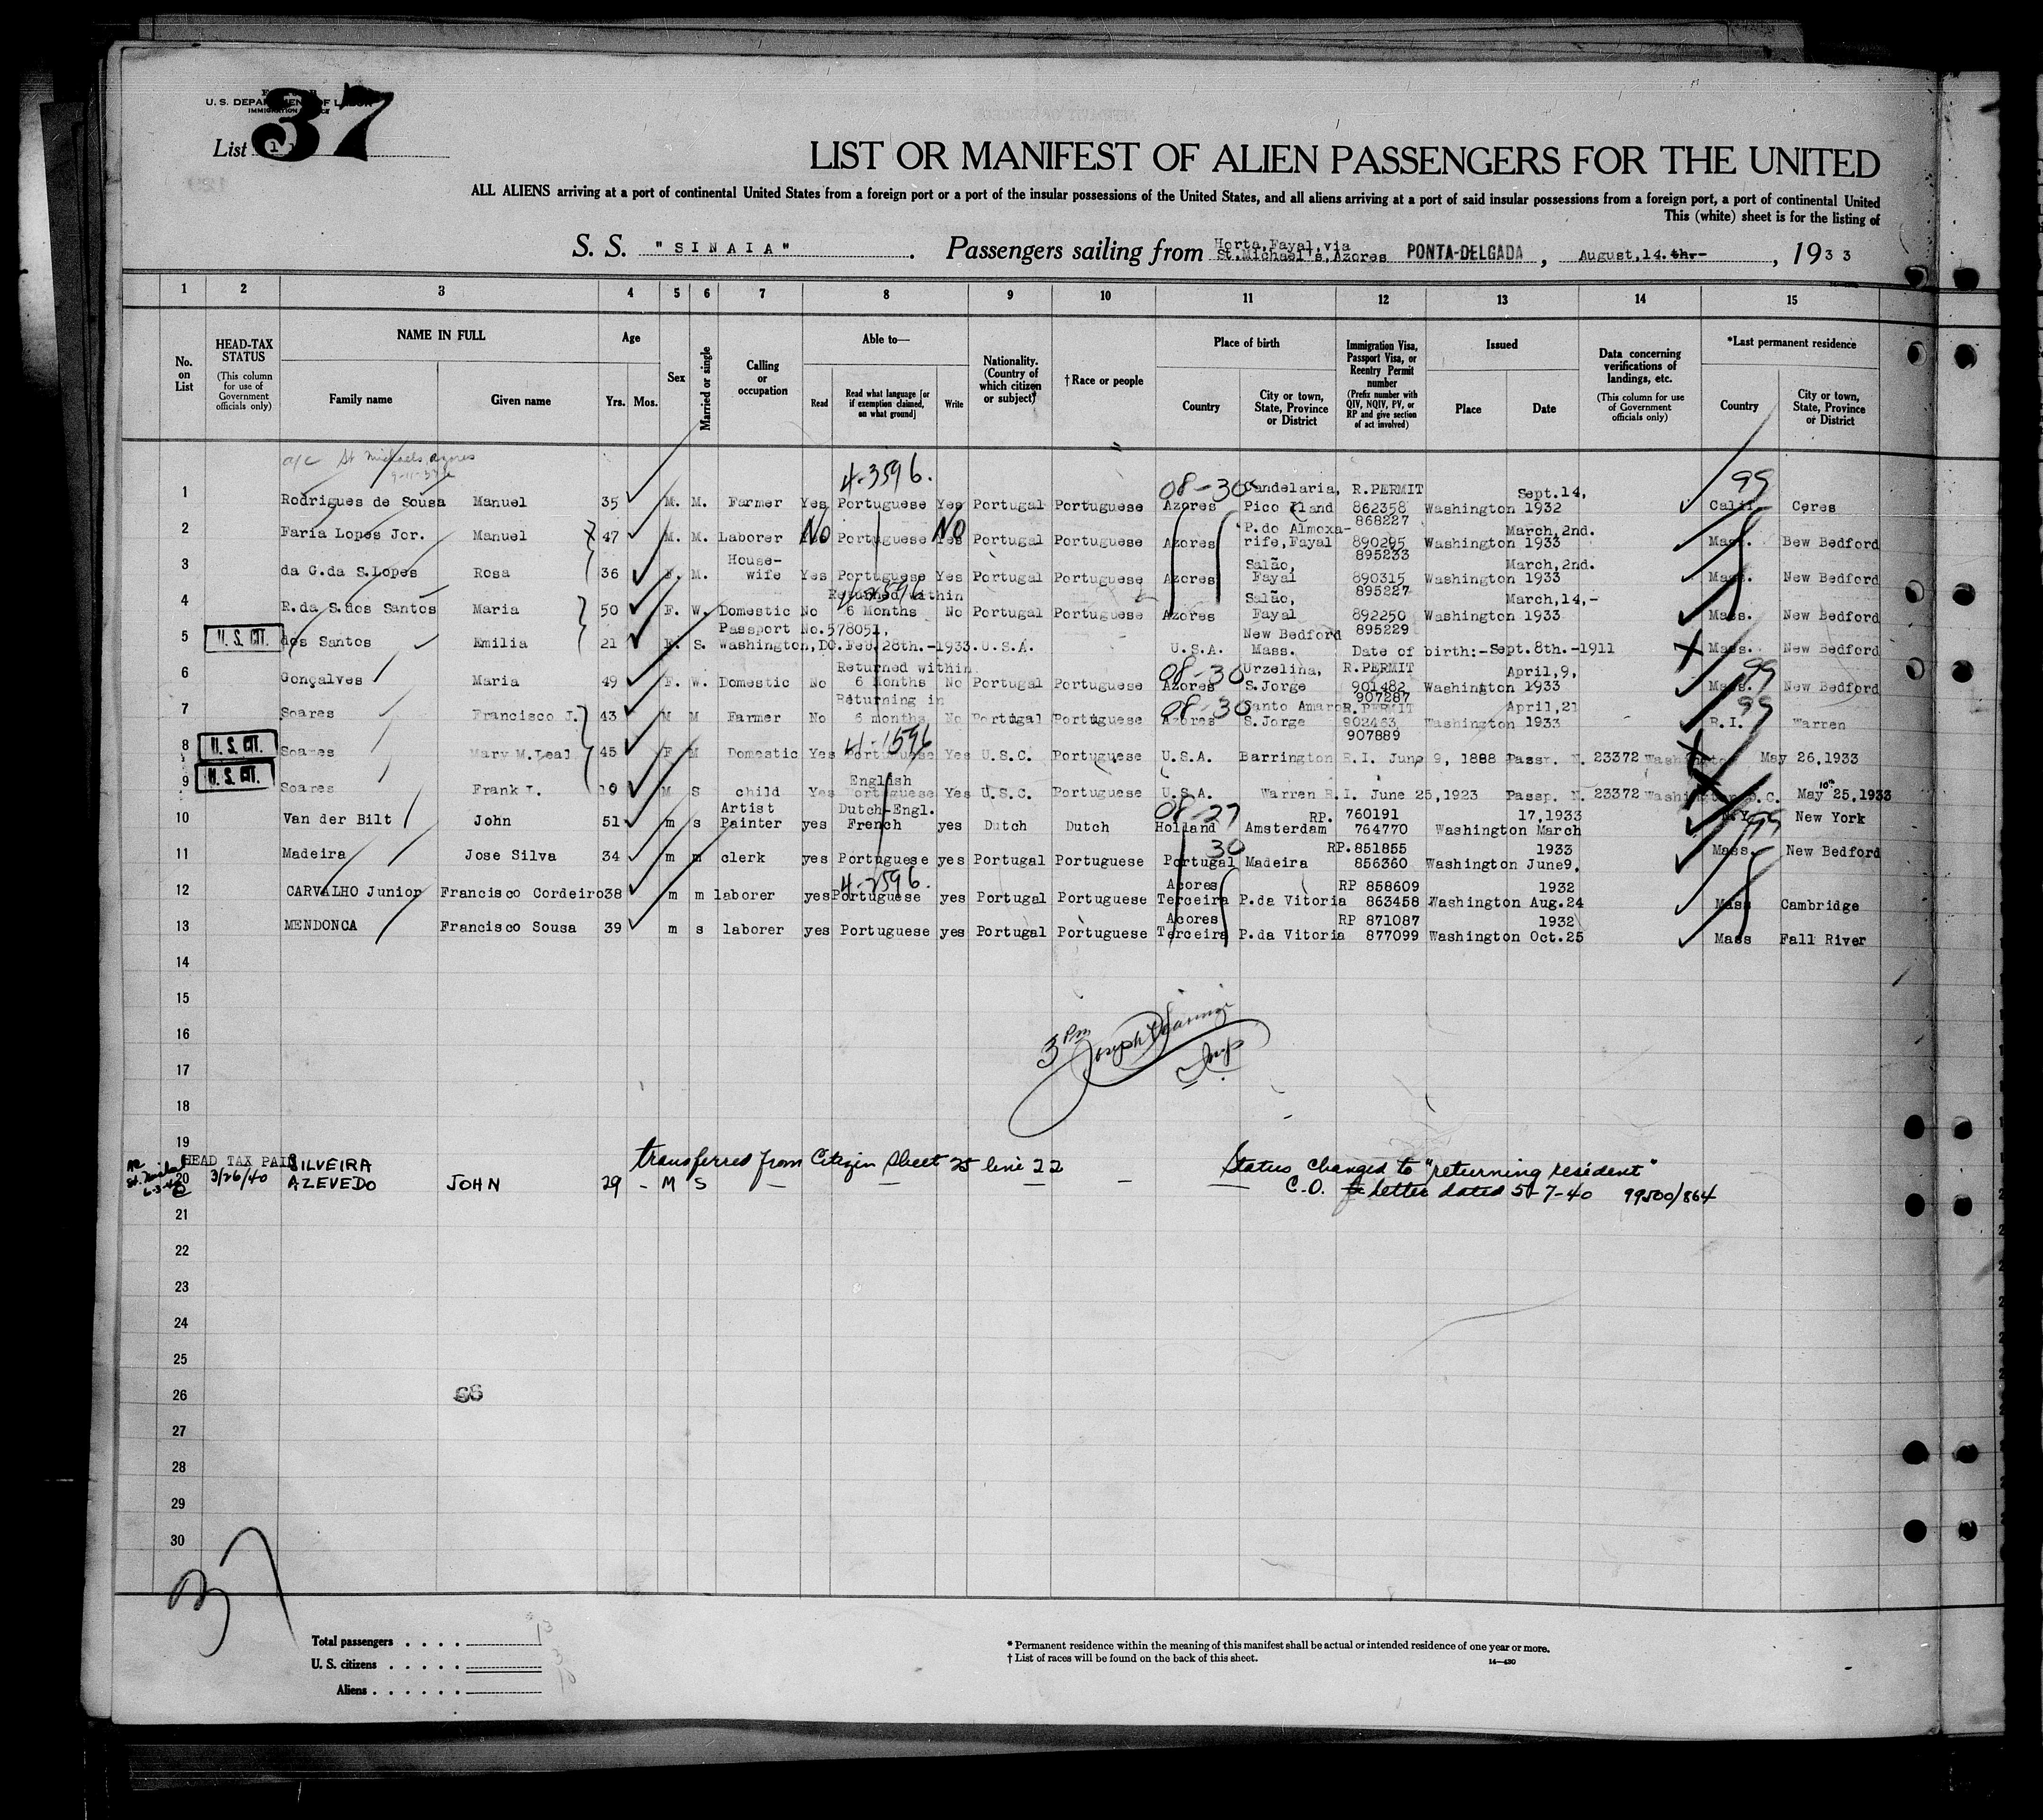 U. S. DEPARTMENT OF LABOR
IMMIGRATION SERVICE
37
List 1
LIST OR MANIFEST OF ALIEN PASSENGERS FOR THE UNITED
ALL ALIENS arriving at a port of continental United States from a foreign port or a port of the insular possessions of the United States, and all aliens arriving at a port of said insular possessions from a foreign port, a port of continental United
This (white) sheet is for the listing of
S. S. "SINAIA". Passengers sailing from Horta, Fayal, via St.Michael's, Azores PONTA-DELGADA, August, 14.thr-, 1933
1 2 3 4 5 6 7 8 9 10 11 12 13 14 15
No. on List
HEAD-TAX STATUS (This column for use of Government officials only)
NAME IN FULL
Family name Given name
Age
Yrs. Mos.
Sex
Married or single
Calling or occupation
Able to—
Read Read what language [or if exemption claimed, on what ground] Write
Nationality. (Country of which citizen or subject)
†Race or people
Place of birth
Country City or town, State, Province or District
Immigration Visa, Passport Visa, or Reentry Permit number (Prefix number with QIV, NQIV, PV, or RP and give section of act involved)
Issued
Place Date
Data concerning verifications of landings, etc. (This column for use of Government officials only)
*Last permanent residence
Country City or town, State, Province or District
a/c St Michaels Azores
4-3596.
1 Rodrigues de Sousa Manuel 35 M. M. Farmer Yes Portuguese Yes Portugal Portuguese 08-30 Azores Candelaria, Pico Iland R.PERMIT 862358 868227 Washington Sept.14, 1932 99 Calif. Ceres
2 Faria Lopes Jor. Manuel X 47 M. M. Laborer No Portuguese No Yes Portugal Portuguese Azores P.do Almoxa-rife, Fayal 890295 895233 Washington March,2nd. 1933 Mass. Bew Bedford
3 da G.da S.Lopes Rosa 36 F. M. House-wife Yes Portuguese Yes Portugal Portuguese Azores Salão, Fayal 890315 895227 Washington March,2nd. 1933 Mass. New Bedford
4 R.da S.dos Santos Maria 50 F. W. Domestic No Returned within 6 Months No Portugal Portuguese Azores Salão, Fayal 892250 895229 Washington March,14,- 1933 Mass. New Bedford
5 U. S. CIT. dos Santos Emilia 21 F. S. Passport No.578051, Washington,DC.Feb.28th.-1933. U.S.A. U.S.A. New Bedford Mass. Date of birth:-Sept.8th.-1911 Mass. New Bedford
6 Gonçalves Maria 49 F. W. Domestic No Returned within 6 Months No Portugal Portuguese 08-30 Azores Urzelina, S.Jorge R.PERMIT 901482 907287 Washington April,9, 1933 99 Mass. New Bedford
7 Soares Francisco J. 43 M M Farmer No Returning in 6 months No Portugal Portuguese 08-30 Azores Santo Amaro S.Jorge R.PERMIT 902463 907889 Washington April,21 1933 99 R.I. Warren
8 U. S. CIT. Soares Mary M.Leal 45 F M Domestic Yes 4-1596 Portuguese Yes U.S.C. Portuguese U.S.A. Barrington R.I. June 9, 1888 Passp. N. 23372 Washington May 26,1933
9 U. S. CIT. Soares Frank L. 19 M S child Yes English Portuguese Yes U.S.C. Portuguese U.S.A. Warren R.I. June 25,1923 Passp. N. 23372 Washington D.C. May 25,1933
10 Van der Bilt John 51 m s Artist Painter yes Dutch-Engl. French yes Dutch Dutch 08-27 Holland Amsterdam RP. 760191 764770 Washington 17,1933 March N.Y. New York
11 Madeira Jose Silva 34 m m clerk yes Portuguese yes Portugal Portuguese 30 Portugal Madeira RP.851855 856360 Washington 1933 June9. 99 Mass. New Bedford
12 CARVALHO Junior Francisco Cordeiro 38 m m laborer yes 4-2596. Portuguese yes Portugal Portuguese Acores Terceira P.da Vitoria RP 858609 863458 Washington 1932 Aug.24 Mass Cambridge
13 MENDONCA Francisco Sousa 39 m s laborer yes Portuguese yes Portugal Portuguese Acores Terceira P.da Vitoria RP 871087 877099 Washington 1932 Oct.25 Mass Fall River
14
15
16
3 Pm Joseph
Insp.
17
18
19
HEAD TAX PAID SILVEIRA transferred from Citizen Sheet 25 line 22 Status changed to "returning resident"
20 3/26/40 AZEVEDO JOHN 29 - M S - - - - C.O. letter dated 5-7-40 99500/864
21
22
23
24
25
26
27
28
29
30
37
Total passengers . . . . 13
U. S. citizens . . . . . 3
Aliens . . . . . . 10
* Permanent residence within the meaning of this manifest shall be actual or intended residence of one year or more.
† List of races will be found on the back of this sheet.
14—430